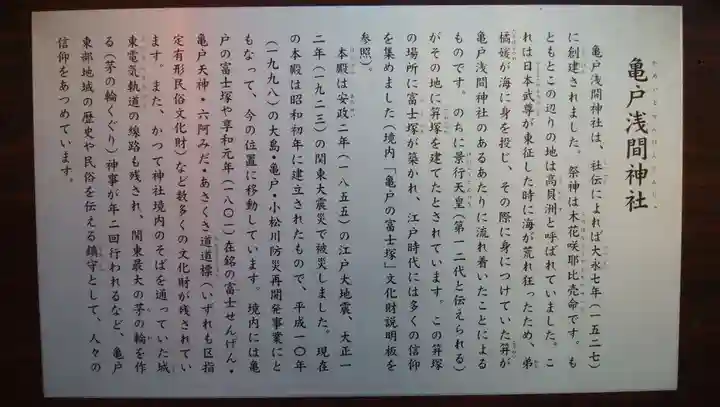 亀戸浅間神社
かめいどせんげんじんじゃ
亀戸浅間神社は、社伝によれば大永七年(一五二七)
に創建されました。祭神は木花咲耶比売命です。も
ともとこの辺りの地は高貝洲と呼ばれていました。こ
れは日本武尊が東征した時に海が荒れ狂ったため、弟
橘媛が海に身を投じ、その際に身につけていた笄が
亀戸浅間神社のあるあたりに流れ着いたことによる
ものです。のちに景行天皇(第一二代と伝えられる)
がその地に笄塚を建てたとされています。この笄塚
の場所に富士塚が築かれ、江戸時代には多くの信仰
を集めました(境内「亀戸の富士塚」文化財説明板を
参照)。
本殿は安政二年(一八五五)の江戸大地震、大正一
二年(一九二三)の関東大震災で被災しました。現在
の本殿は昭和初年に建立されたもので、平成一〇年
(一九九八)の大島・亀戸・小松川防災再開発事業にと
もなって、今の位置に移動しています。境内には亀
戸の富士塚や享和元年(一八〇一)在銘の富士せんげん・
亀戸天神・六阿みだ・あさくさ道道標(いずれも区指
定有形民俗文化財)など数多くの文化財が残されてい
ます。また、かつて神社境内のそばを通っていた城
東電気軌道の線路も残され、関東最大の茅の輪を作
る(茅の輪くぐり)神事が年二回行われるなど、亀戸
東部地域の歴史や民俗を伝える鎮守として、人々の
信仰をあつめています。